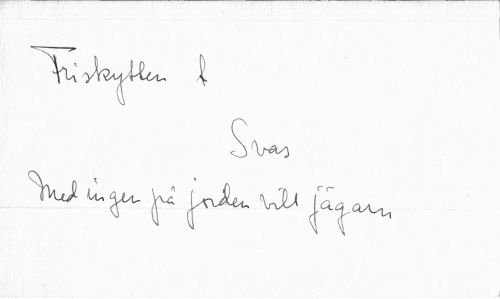 Friskytten t
Svas
Med ingen på jorden vill jägarn